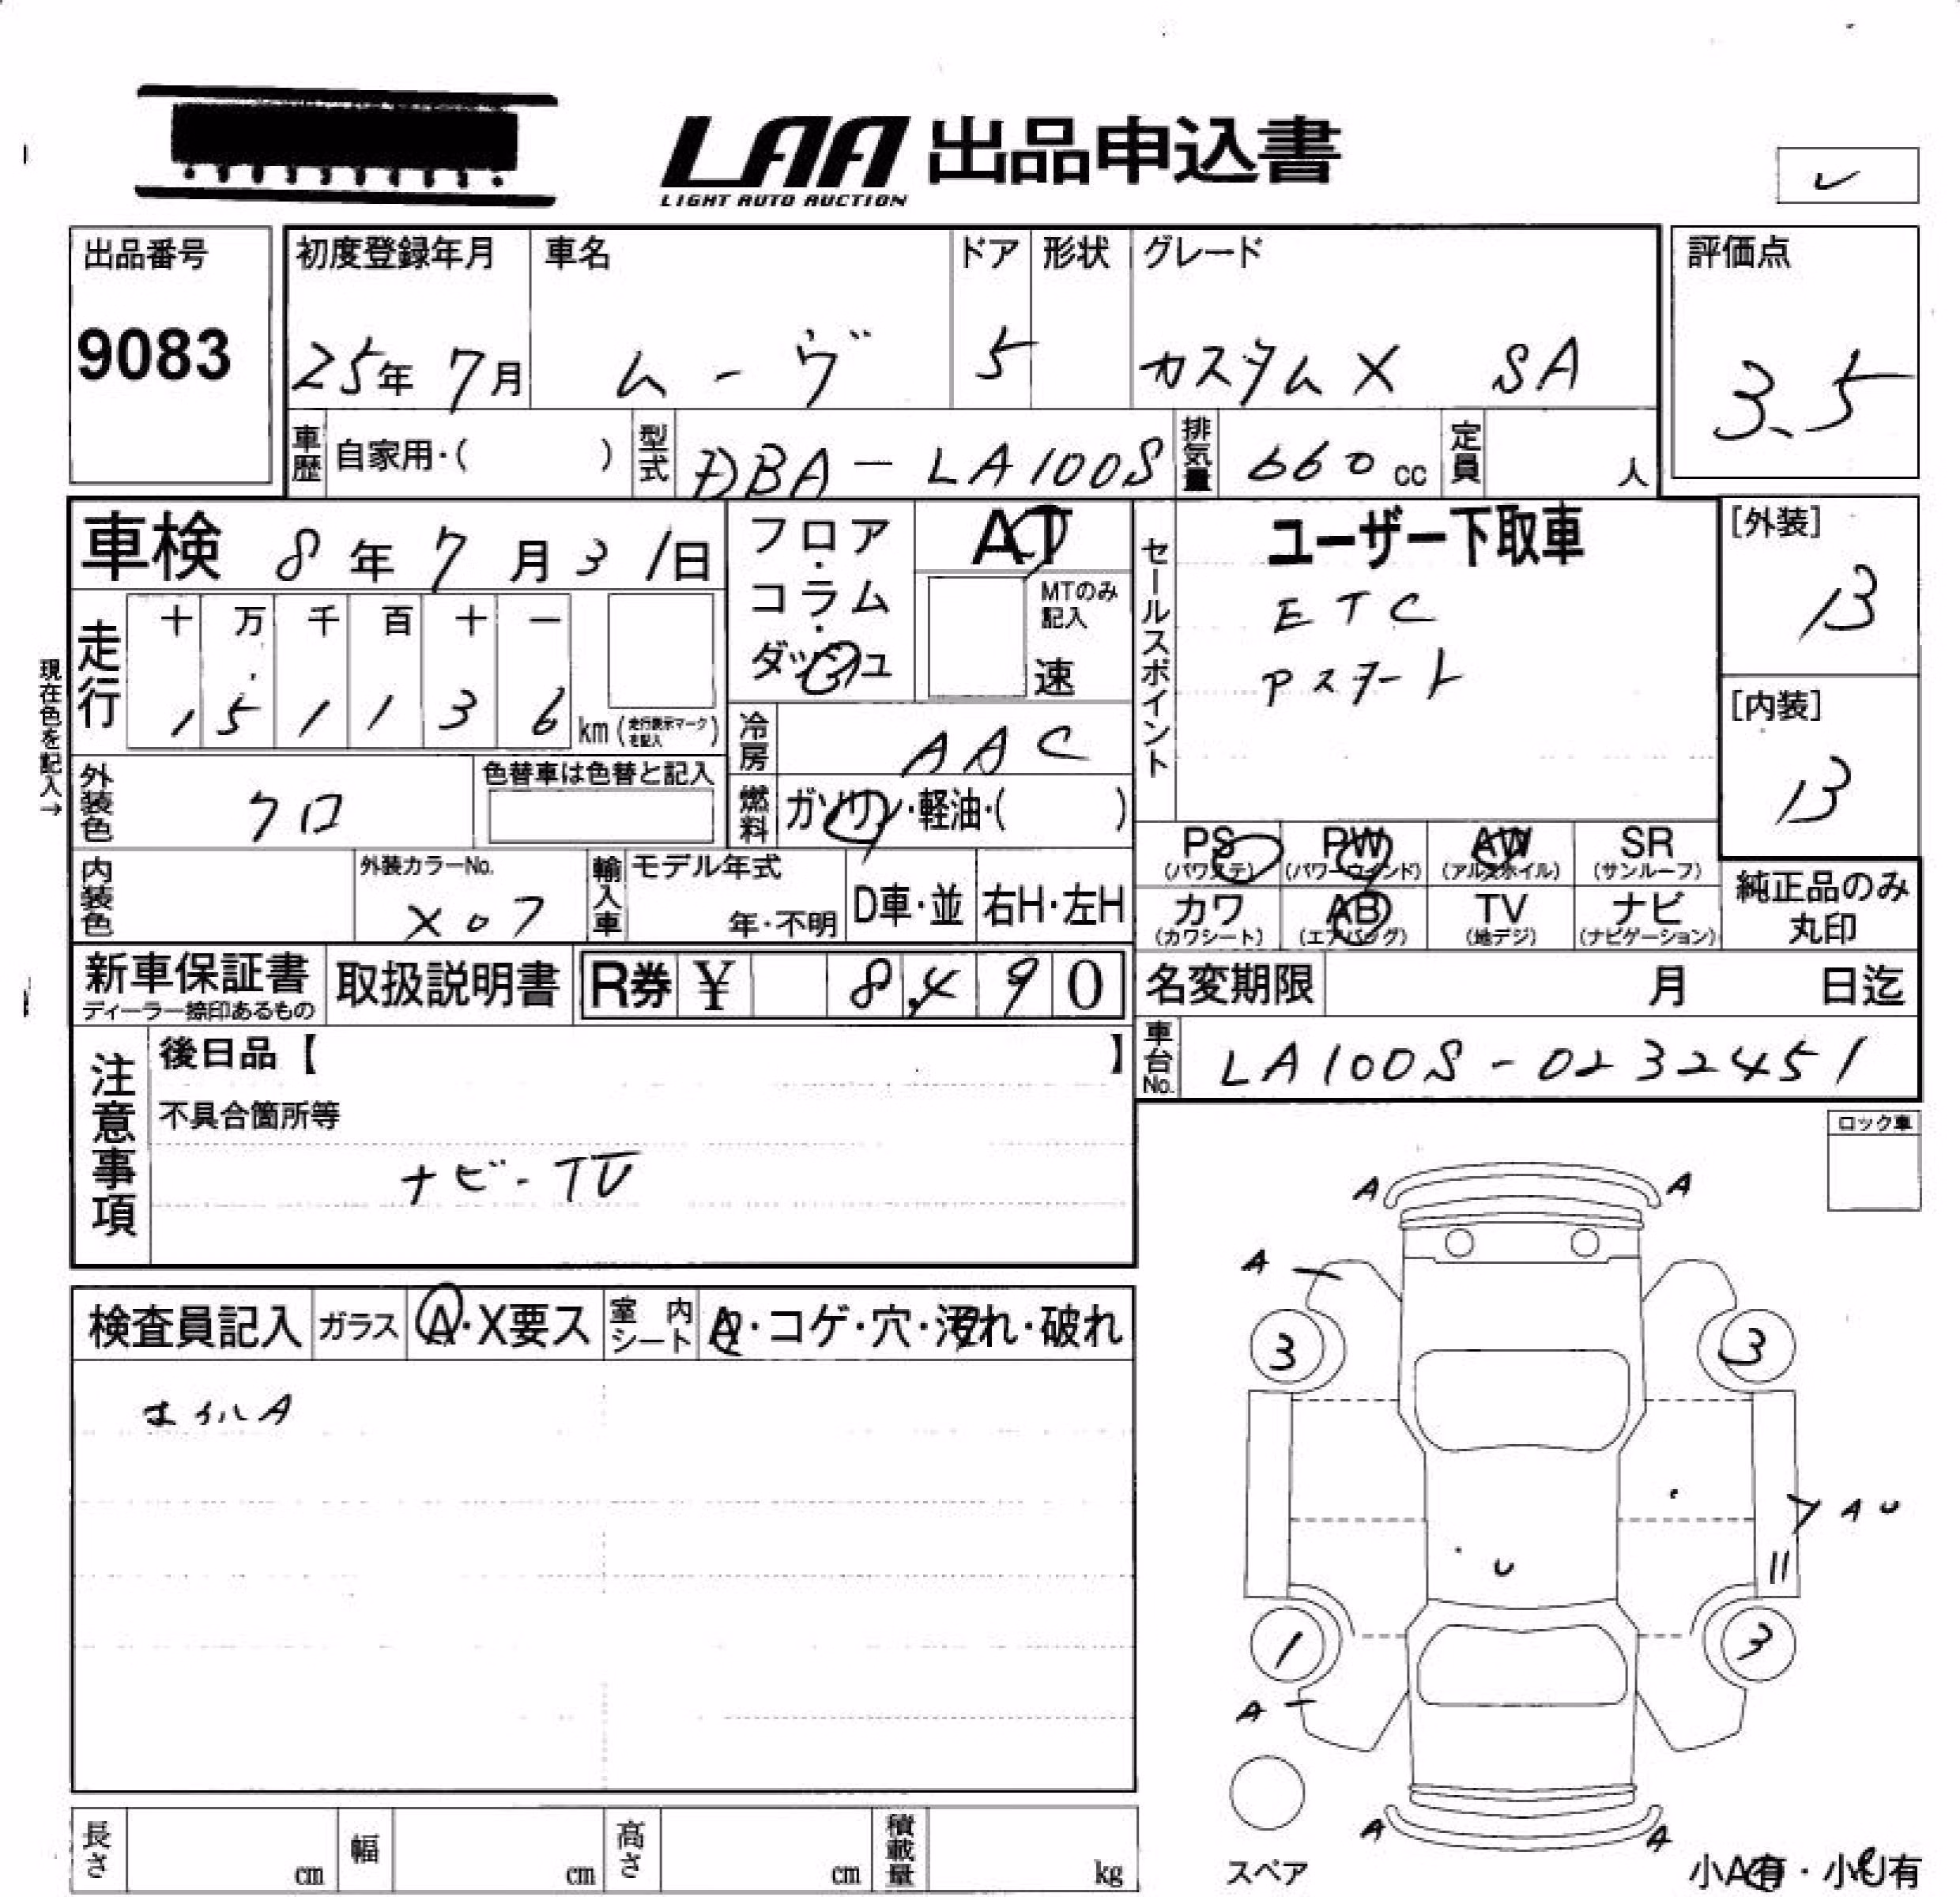 LAA 出品申込書
LIGHT AUTO AUCTION
出品番号
9083
初度登録年月 車名 ドア 形状 グレード
25年 7月 ムーヴ 5 カスタムX SA
評価点
3.5
車歴 自家用・( ) 型式 DBA-LA100S 排気量 660 cc 定員 人
車検 8年 7月 31日
フロア・コラム・ダッシュ
AT
MTのみ記入
速
セールスポイント
ユーザー下取車
ETC
Pスタート
[外装]
B
[内装]
B
現在色を記入→
走行 十 万 千 百 十 一
1 5 1 1 3 6 km (走行表示マークを記入)
冷房 AAC
外装色 クロ 色替車は色替と記入
燃料 ガソリン・軽油・( )
PS (パワステ) PW (パワーウインド) AW (アルミホイル) SR (サンルーフ)
カワ (カワシート) AB (エアバッグ) TV (地デジ) ナビ (ナビゲーション)
純正品のみ丸印
内装色 外装カラーNo. X07 輸入車 モデル年式 年・不明 D車・並 右H・左H
新車保証書 ディーラー捺印あるもの 取扱説明書 R券 ¥ 8,490
名変期限 月 日迄
車台No. LA100S-0232451
注意事項
後日品【 】
不具合箇所等
ナビ-TV
ロック車
検査員記入 ガラス A・X要ス 室内シート A・コゲ・穴・汚れ・破れ
ホイルA
A A
A
3 3
A U
U
1 3
A
A A
スペア
小A有・小U有
長さ cm 幅 cm 高さ cm 積載量 kg